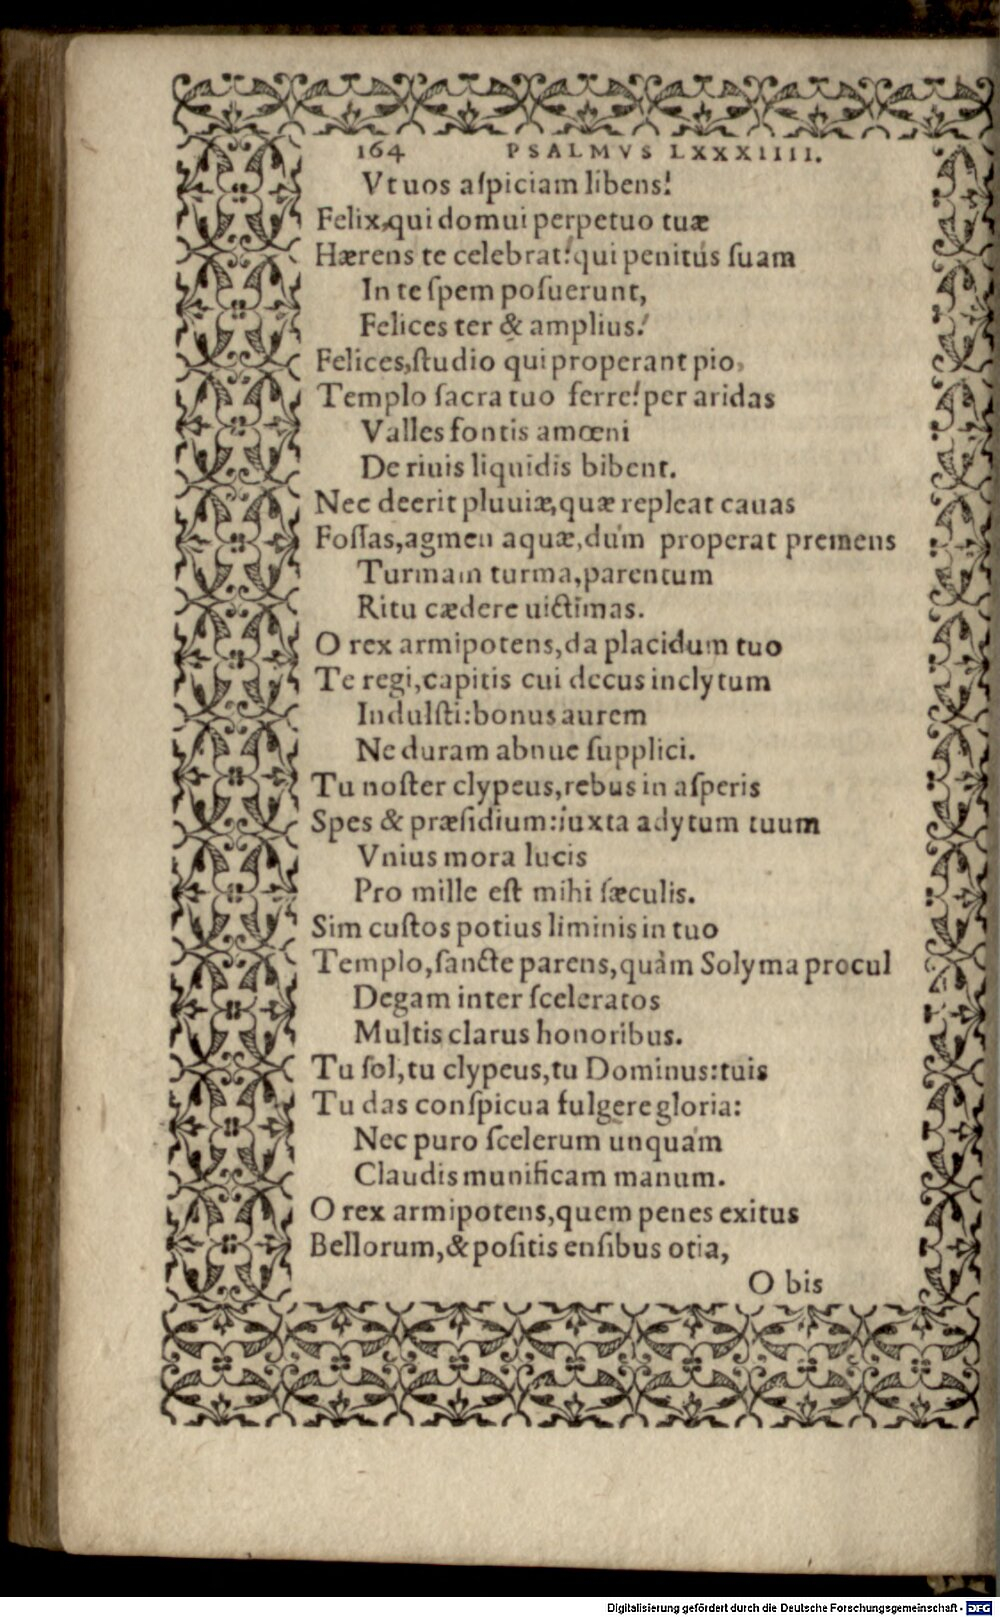 164 PSALMVS LXXXIIII.
Vt uos aſpiciam libens!
Felix, qui domui perpetuo tuæ
Hærens te celebrat! qui penitùs ſuam
In te ſpem poſuerunt,
Felices ter & amplius!
Felices, ſtudio qui properant pio,
Templo ſacra tuo ferre! per aridas
Valles fontis amœni
De riuis liquidis bibent.
Nec deerit pluuiæ, quæ repleat cauas
Foſſas, agmen aquæ, dum properat premens
Turmam turma, parentum
Ritu cædere uictimas.
O rex armipotens, da placidum tuo
Te regi, capitis cui decus inclytum
Indulſti: bonus aurem
Ne duram abnue ſupplici.
Tu noſter clypeus, rebus in aſperis
Spes & præſidium: iuxta adytum tuum
Vnius mora lucis
Pro mille eſt mihi ſæculis.
Sim cuſtos potius liminis in tuo
Templo, ſancte parens, quàm Solyma procul
Degam inter ſceleratos
Multis clarus honoribus.
Tu ſol, tu clypeus, tu Dominus: tuis
Tu das conſpicua fulgere gloria:
Nec puro ſcelerum unquam
Claudis munificam manum.
O rex armipotens, quem penes exitus
Bellorum, & poſitis enſibus otia,
O bis
Digitalisierung gefördert durch die Deutsche Forschungsgemeinschaft - DFG